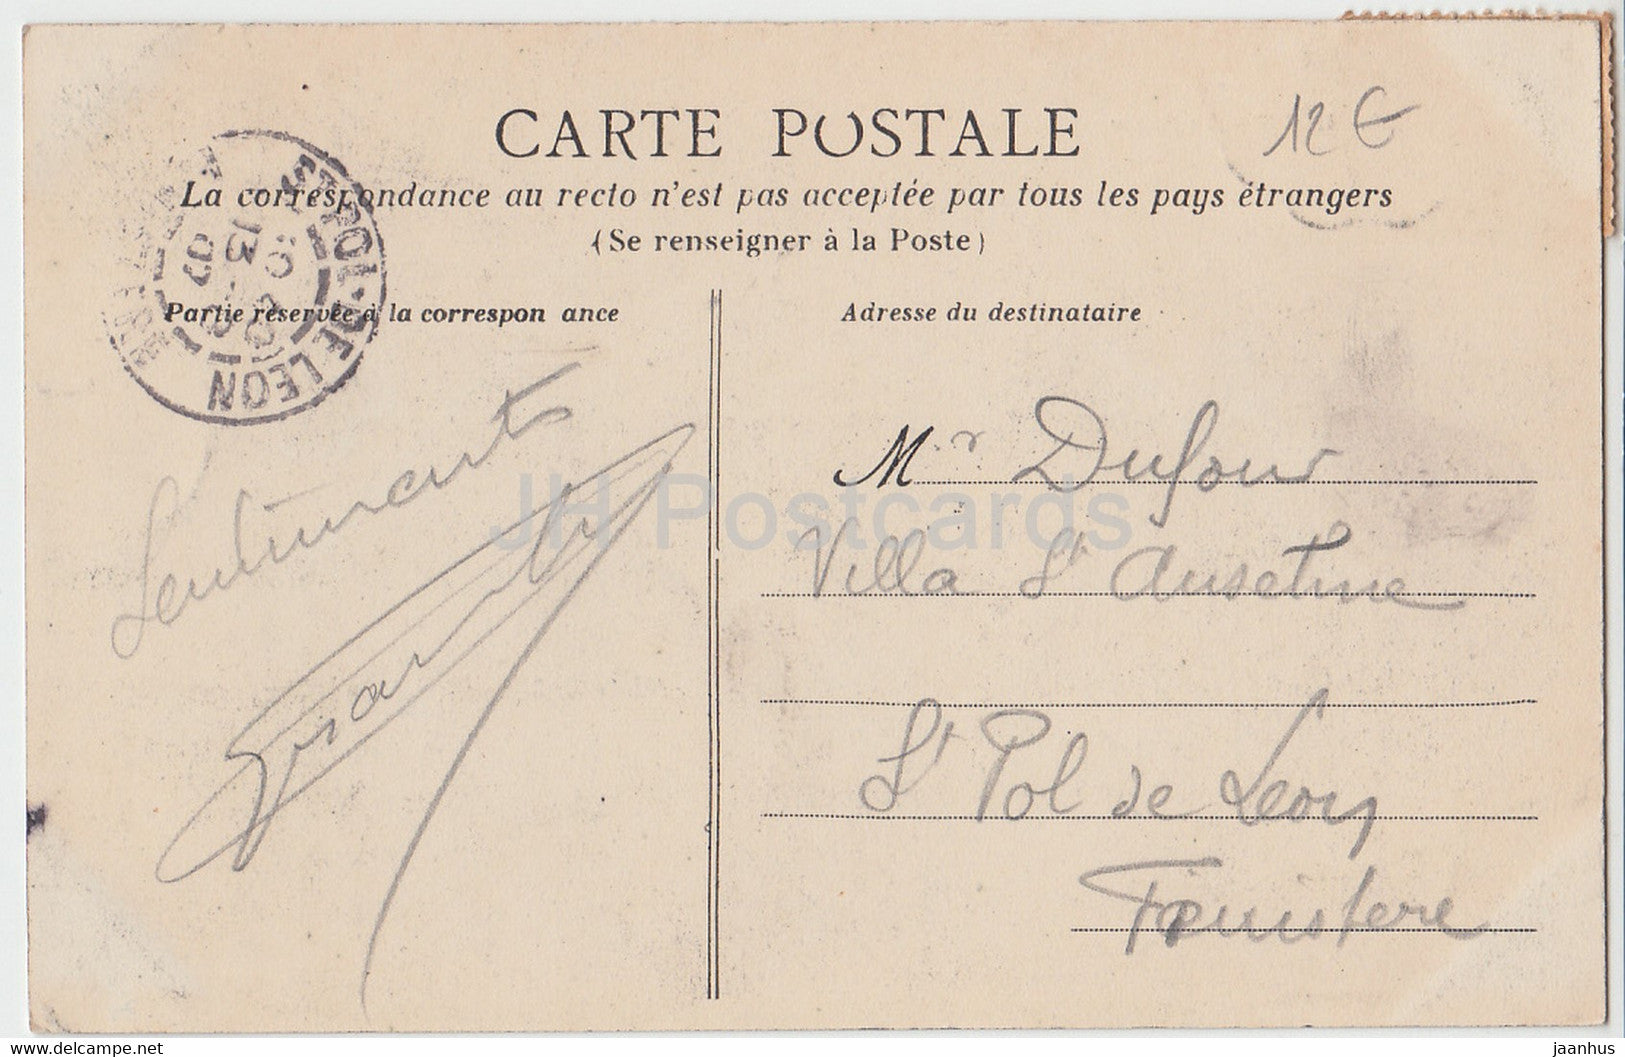 CARTE POSTALE
12 €
La correspondance au recto n'est pas acceptée par tous les pays étrangers
(Se renseigner à la Poste)
ST POL-DE LEON
13
Partie réservée à la correspon ance
Adresse du destinataire
Sentiments
Mr Dufour
Villa St Anselme
St Pol de Leon
Finistere
JH Postcards
www.delcampe.net
jaanhus